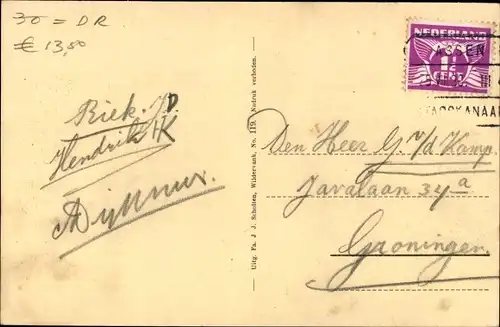 30 = DR
€ 13,50
NEDERLAND
1½
CENT
ASSEN
III
Riek. D.
Hendrik K
Uitg. Fa. J. J. Scholten, Wildervank, No. 119. Nadruk verboden.
Den Heer G. v/d Kamp.
Javalaan 34a
Groningen.